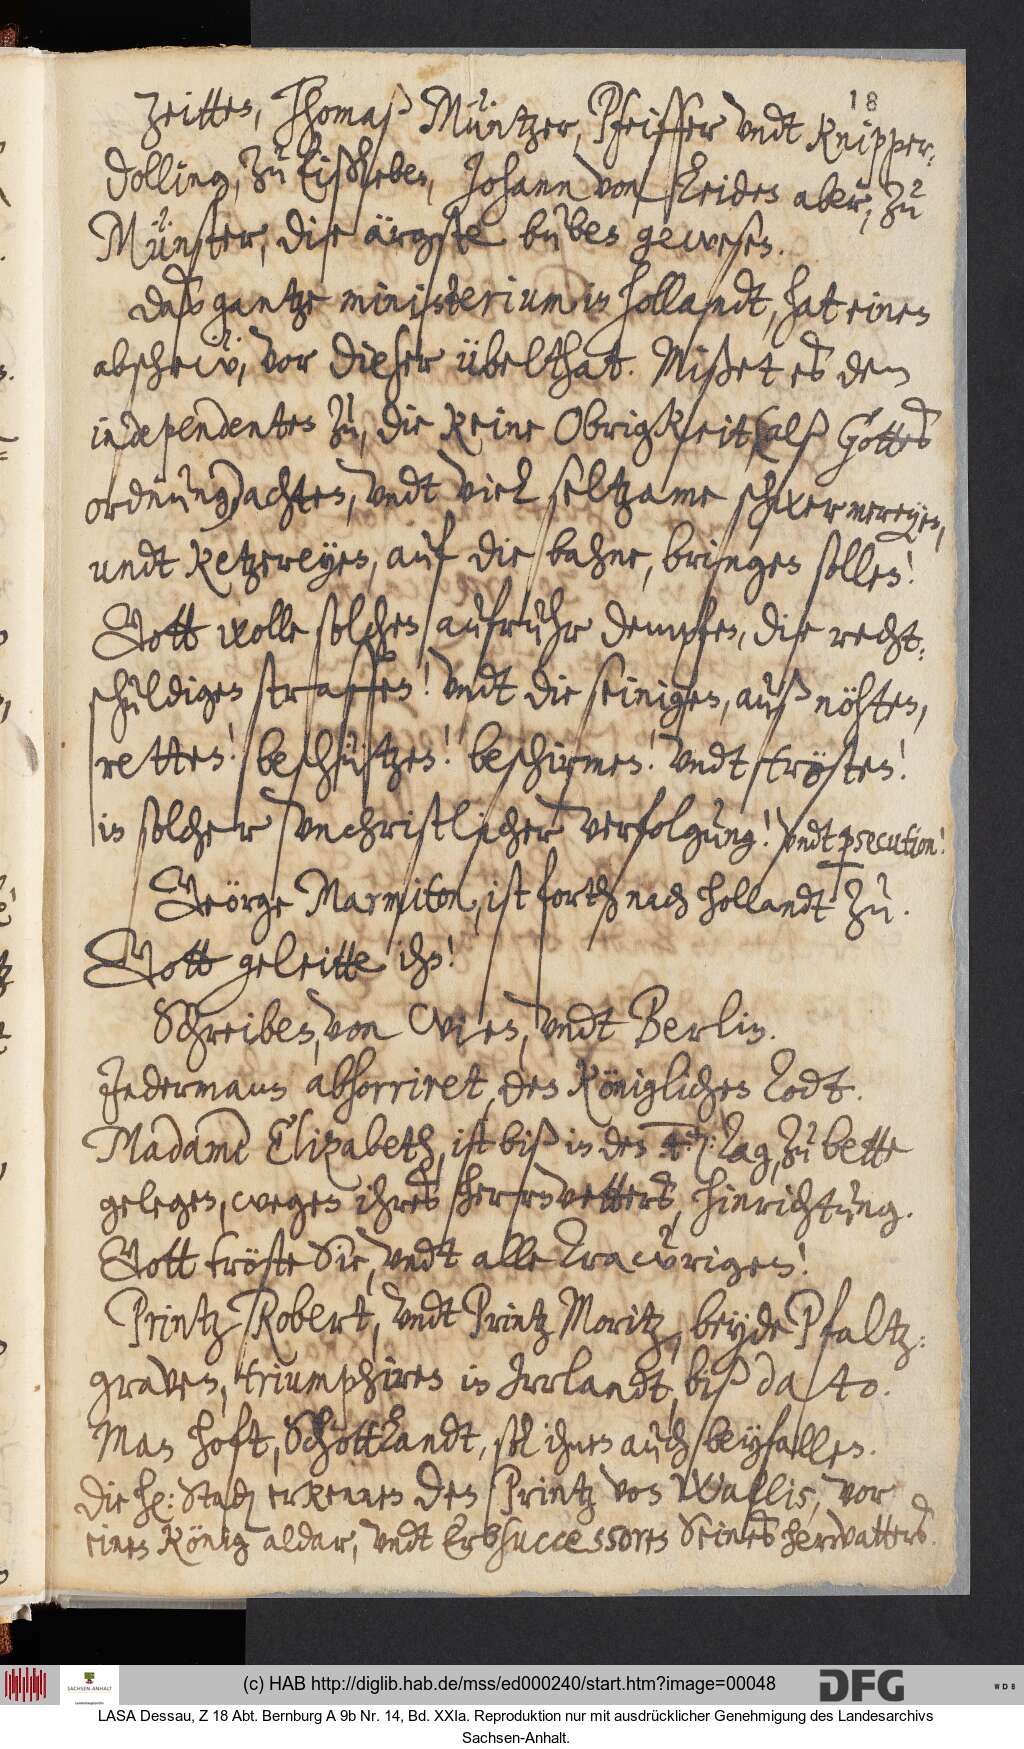 18
zeitten, Thomaß Müntzer, Pfeiffer vndt Knipper-
dolling, zu Eißleben, Johann von Leiden aber, zu
Münster, die ärgste buben gewesen.
Daß gantze ministerium in Hollandt, hat einen
abschew, vor dieser übelthat. Mißet es den
independenten zu, die keine Obrigkeit (alß Gottes
ordnung) achten, vndt viel seltzame schwermereyen,
undt Ketzereyen, auf die bahne, bringen sollen!
Gott wolle solchen aufruhr dempfen, die recht-
schuldigen straffen! vndt die seinigen, auß nöhten,
retten! beschützen! beschirmen! vndt trösten!
in solcher vnchristlicher verfolgung! vndt persecution!
Geörge Marmiton, ist forth nach Hollandt zu.
Gott geleitte ihn!
Schreiben, von Wien, vndt Berlin.
Jedermann abhorriret, den Königlichen Todt.
Madame Elizabeth, ist biß in den 4.: Tag, zu bette
gelegen, wegen ihres herrnvetters, hinrichtung.
Gott tröste Sie, vndt alle Trawrigen!
Printz Robert, vndt Printz Moritz, beyde Pfaltz-
graven, triumphiren in Irrlandt, biß dato.
Man hoft, Schottlandt, sol ihnen auch beyfallen.
Die H: Stad erkennen den Printz von Wallis, vor
einen König aldar, vndt Erbsuccessoren Seines herrvatters.
(c) HAB http://diglib.hab.de/mss/ed000240/start.htm?image=00048
SACHSEN-ANHALT
DFG
WDB
LASA Dessau, Z 18 Abt. Bernburg A 9b Nr. 14, Bd. XXIa. Reproduktion nur mit ausdrücklicher Genehmigung des Landesarchivs
Sachsen-Anhalt.